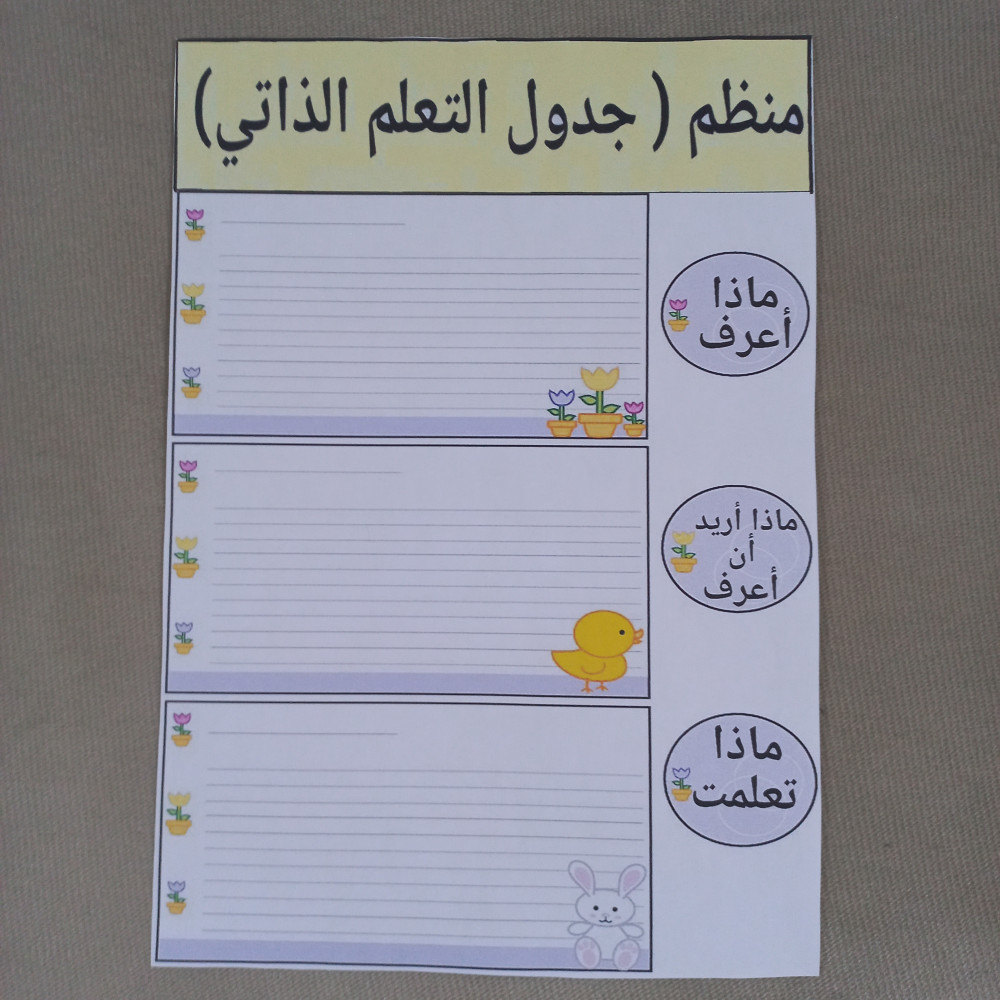 منظم ( جدول التعلم الذاتي)
ماذا
أعرف
ماذا أريد
أن
أعرف
ماذا
تعلمت